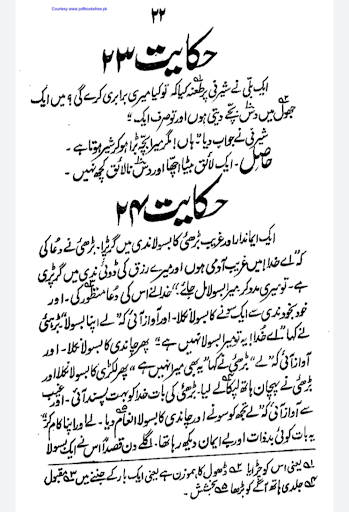 Courtesy www.pdfbooksfree.pk
۲۲
حکایت ۲۳
ایک بلّی نے شیرنی پر طعنہ کیا کہ تو کیا میری برابری کرے گی؟ میں ایک
جھول میں دس بچّے دیتی ہوں اور تو صرف ایک"
شیرنی نے جواب دیا "ہاں! مگر میرا بچّہ بڑا ہو کر شیر ہوتا ہے۔
حاصل۔ ایک لائق بیٹا اچھا اور دس نالائق کچھ نہیں۔
حکایت ۲۴
ایک ایماندار اور غریب بڑھئی کا بسولا ندی میں گر پڑا۔ بڑھئی نے دعا کی
کہ "اے خدا! میں غریب آدمی ہوں اور میرے رزق کی ڈوئی ندی میں گر پڑی
ہے۔ تو میری مدد کر۔ میرا بسولا مل جائے" خدا نے اس کی دعا منظور کی۔ اور
خود بخود ندی سے ایک سونے کا بسولا نکلا۔ اور آواز آئی کہ "لے اپنا بسولا" بڑھئی
نے کہا "اے خدا! یہ تو میرا بسولا نہیں ہے" پھر چاندی کا بسولا نکلا۔ اور
آواز آئی کہ "لے" بڑھئی نے کہا "یہ بھی میرا نہیں ہے" پھر لکڑی کا بسولا نکلا اور
بڑھئی نے پہچان ہاتھ لپکا کے لے لیا۔ بڑھئی کی بات خدا کو بہت پسند آئی۔ اور غیب
سے آواز آئی کہ "لے تجھ کو سونے اور چاندی کا بسولا انعام دیا۔ لے اور اپنا کام کر"
یہ بات کوئی بدذات اور بے ایمان دیکھ رہا تھا۔ اگلے دن قصداً اس نے ایک بسولا
۱ یعنی اس کو چڑایا ۲ ڈھول کا ہموزن ہے یعنی ایک بار کے جننے میں ۳ مقبول
۴ جلدی ہاتھ آگے کو بڑھا ۵ بخشش۔